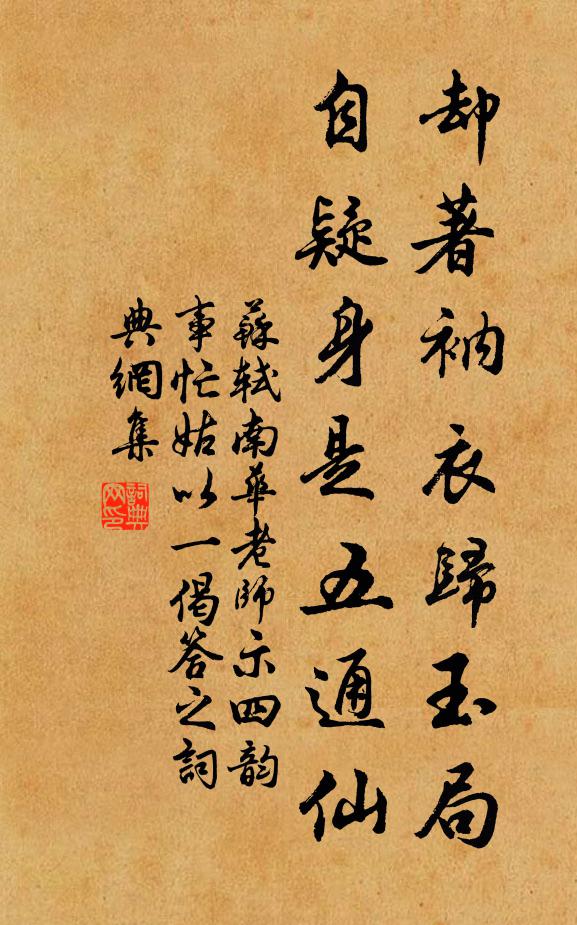 却著衲衣歸玉局
自疑身是五通仙
蘇軾南華老師示四韵
事忙姑以一偈答之詞
典網集
詞典
网印